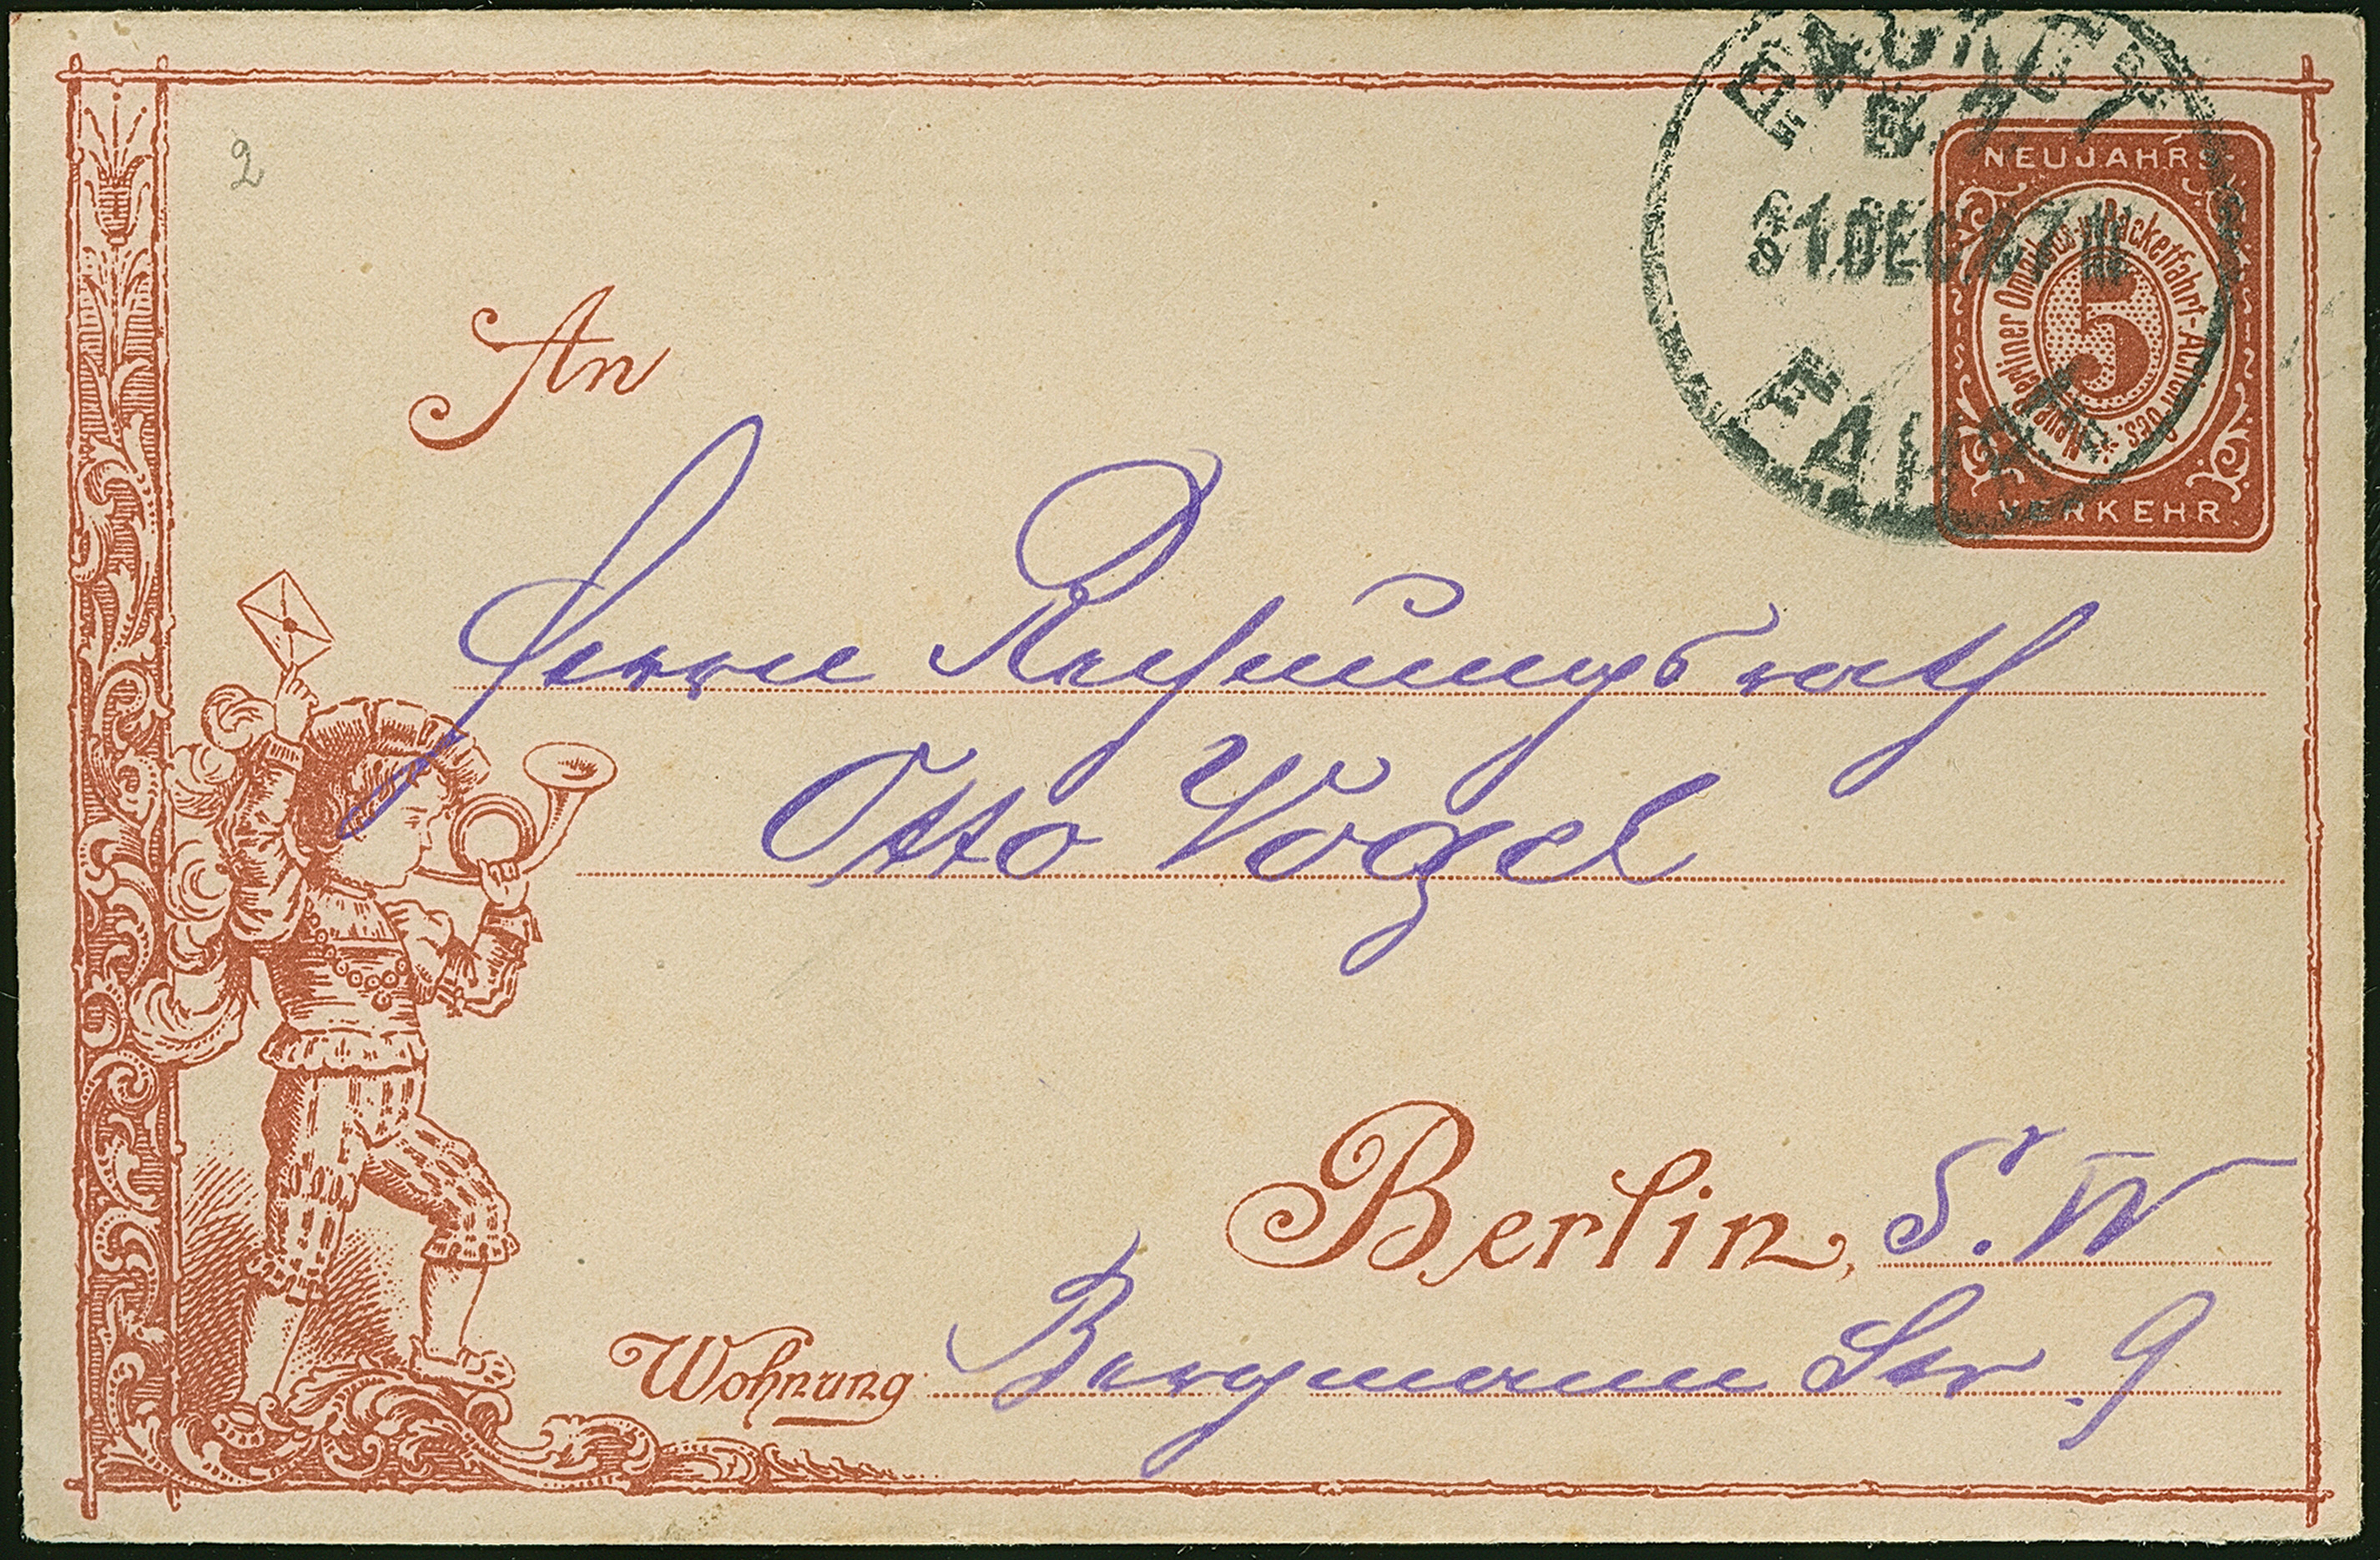 2
NEUJAHRS-
Neue Berliner Omnibus- u. Packetfahrt-Actien Ges.
5
VERKEHR.
31.DEC.97 III
FAHRT
An
Herrn Rechnungsrath
Otto Vogel
Berlin, S.W
Wohnung: Bergmann Str. 9